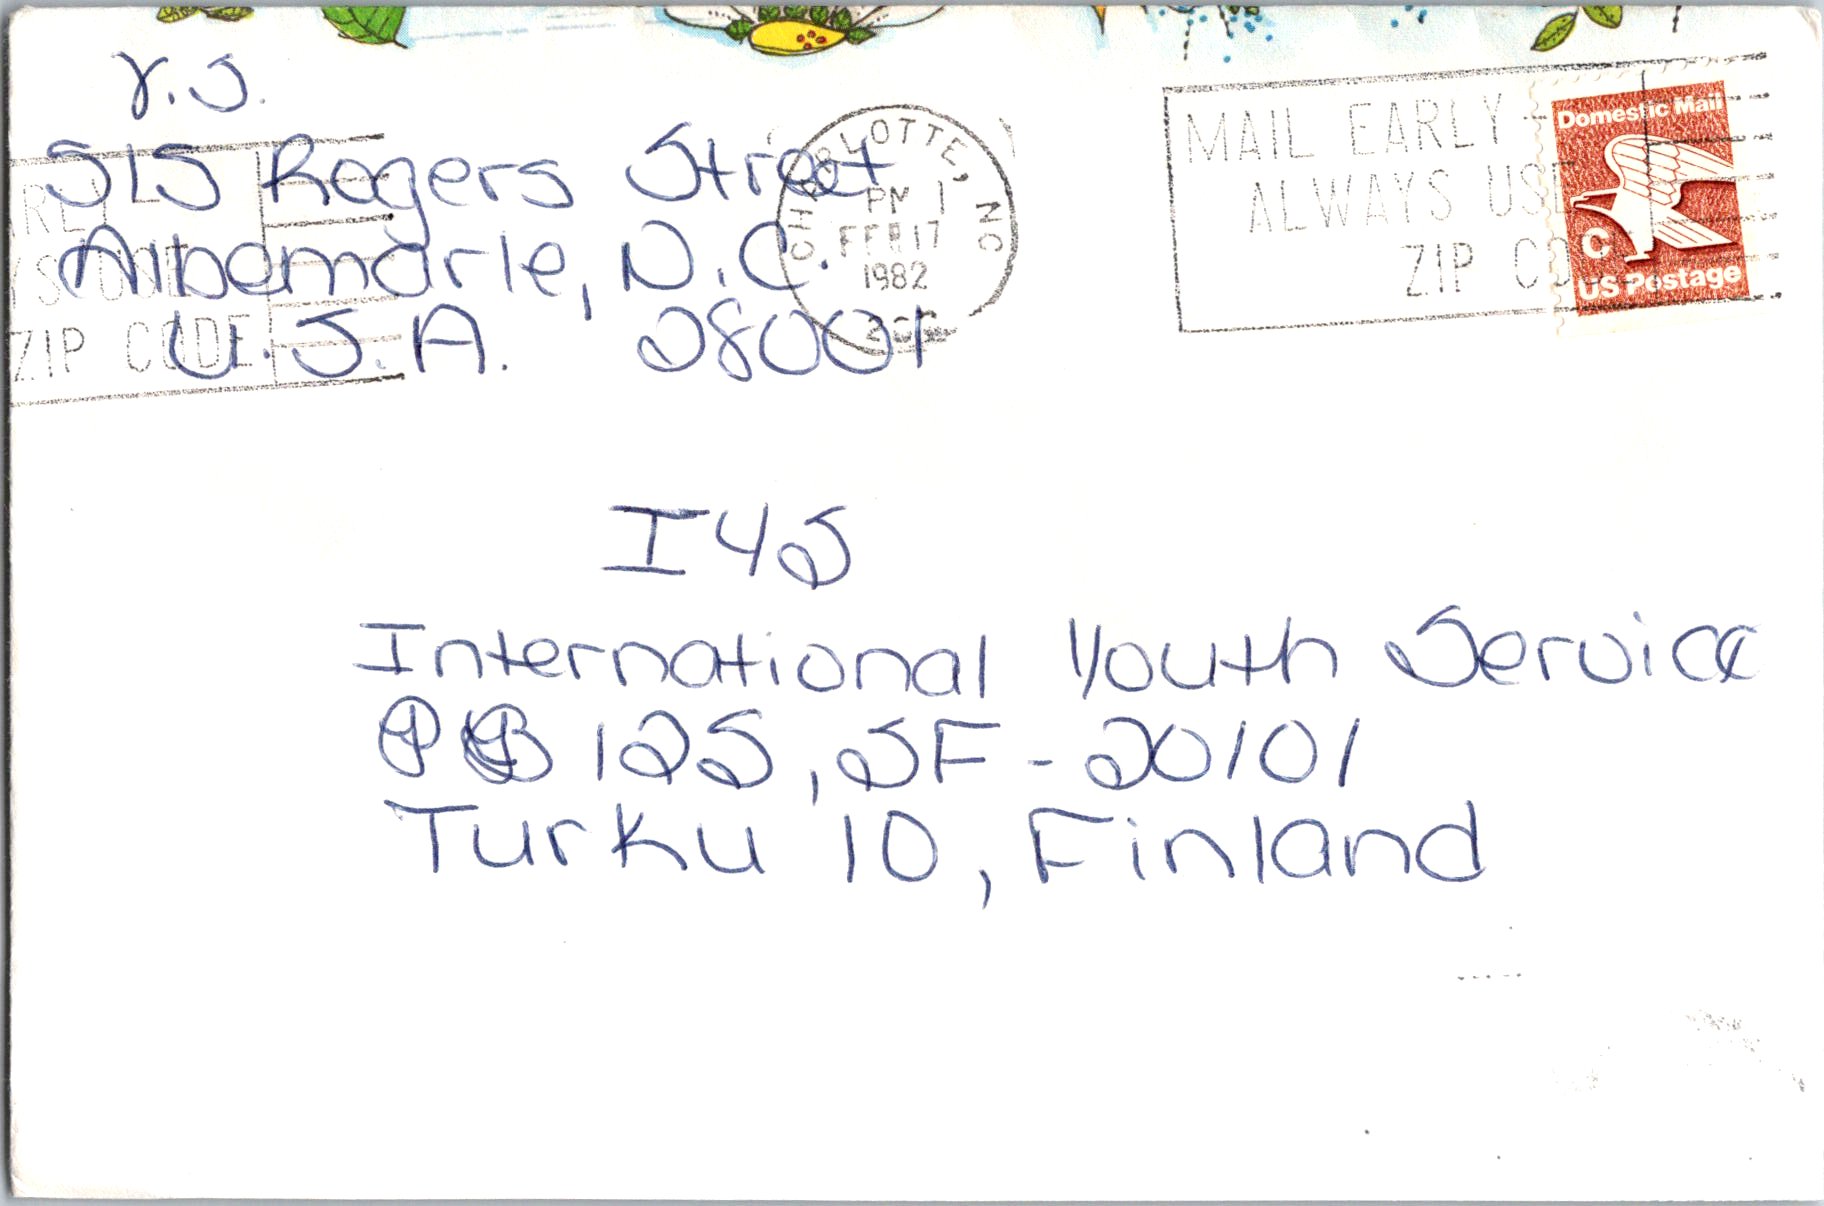 Y.S.
515 Rogers Street
Albemarle, N.C.
U.S.A. 28001
CHARLOTTE, NC
PM
FEB 17
1982
MAIL EARLY
ALWAYS USE
ZIP CODE
Domestic Mail
C
US Postage
ZIP CODE
IYS
International Youth Service
PB 125, SF-20101
Turku 10, Finland